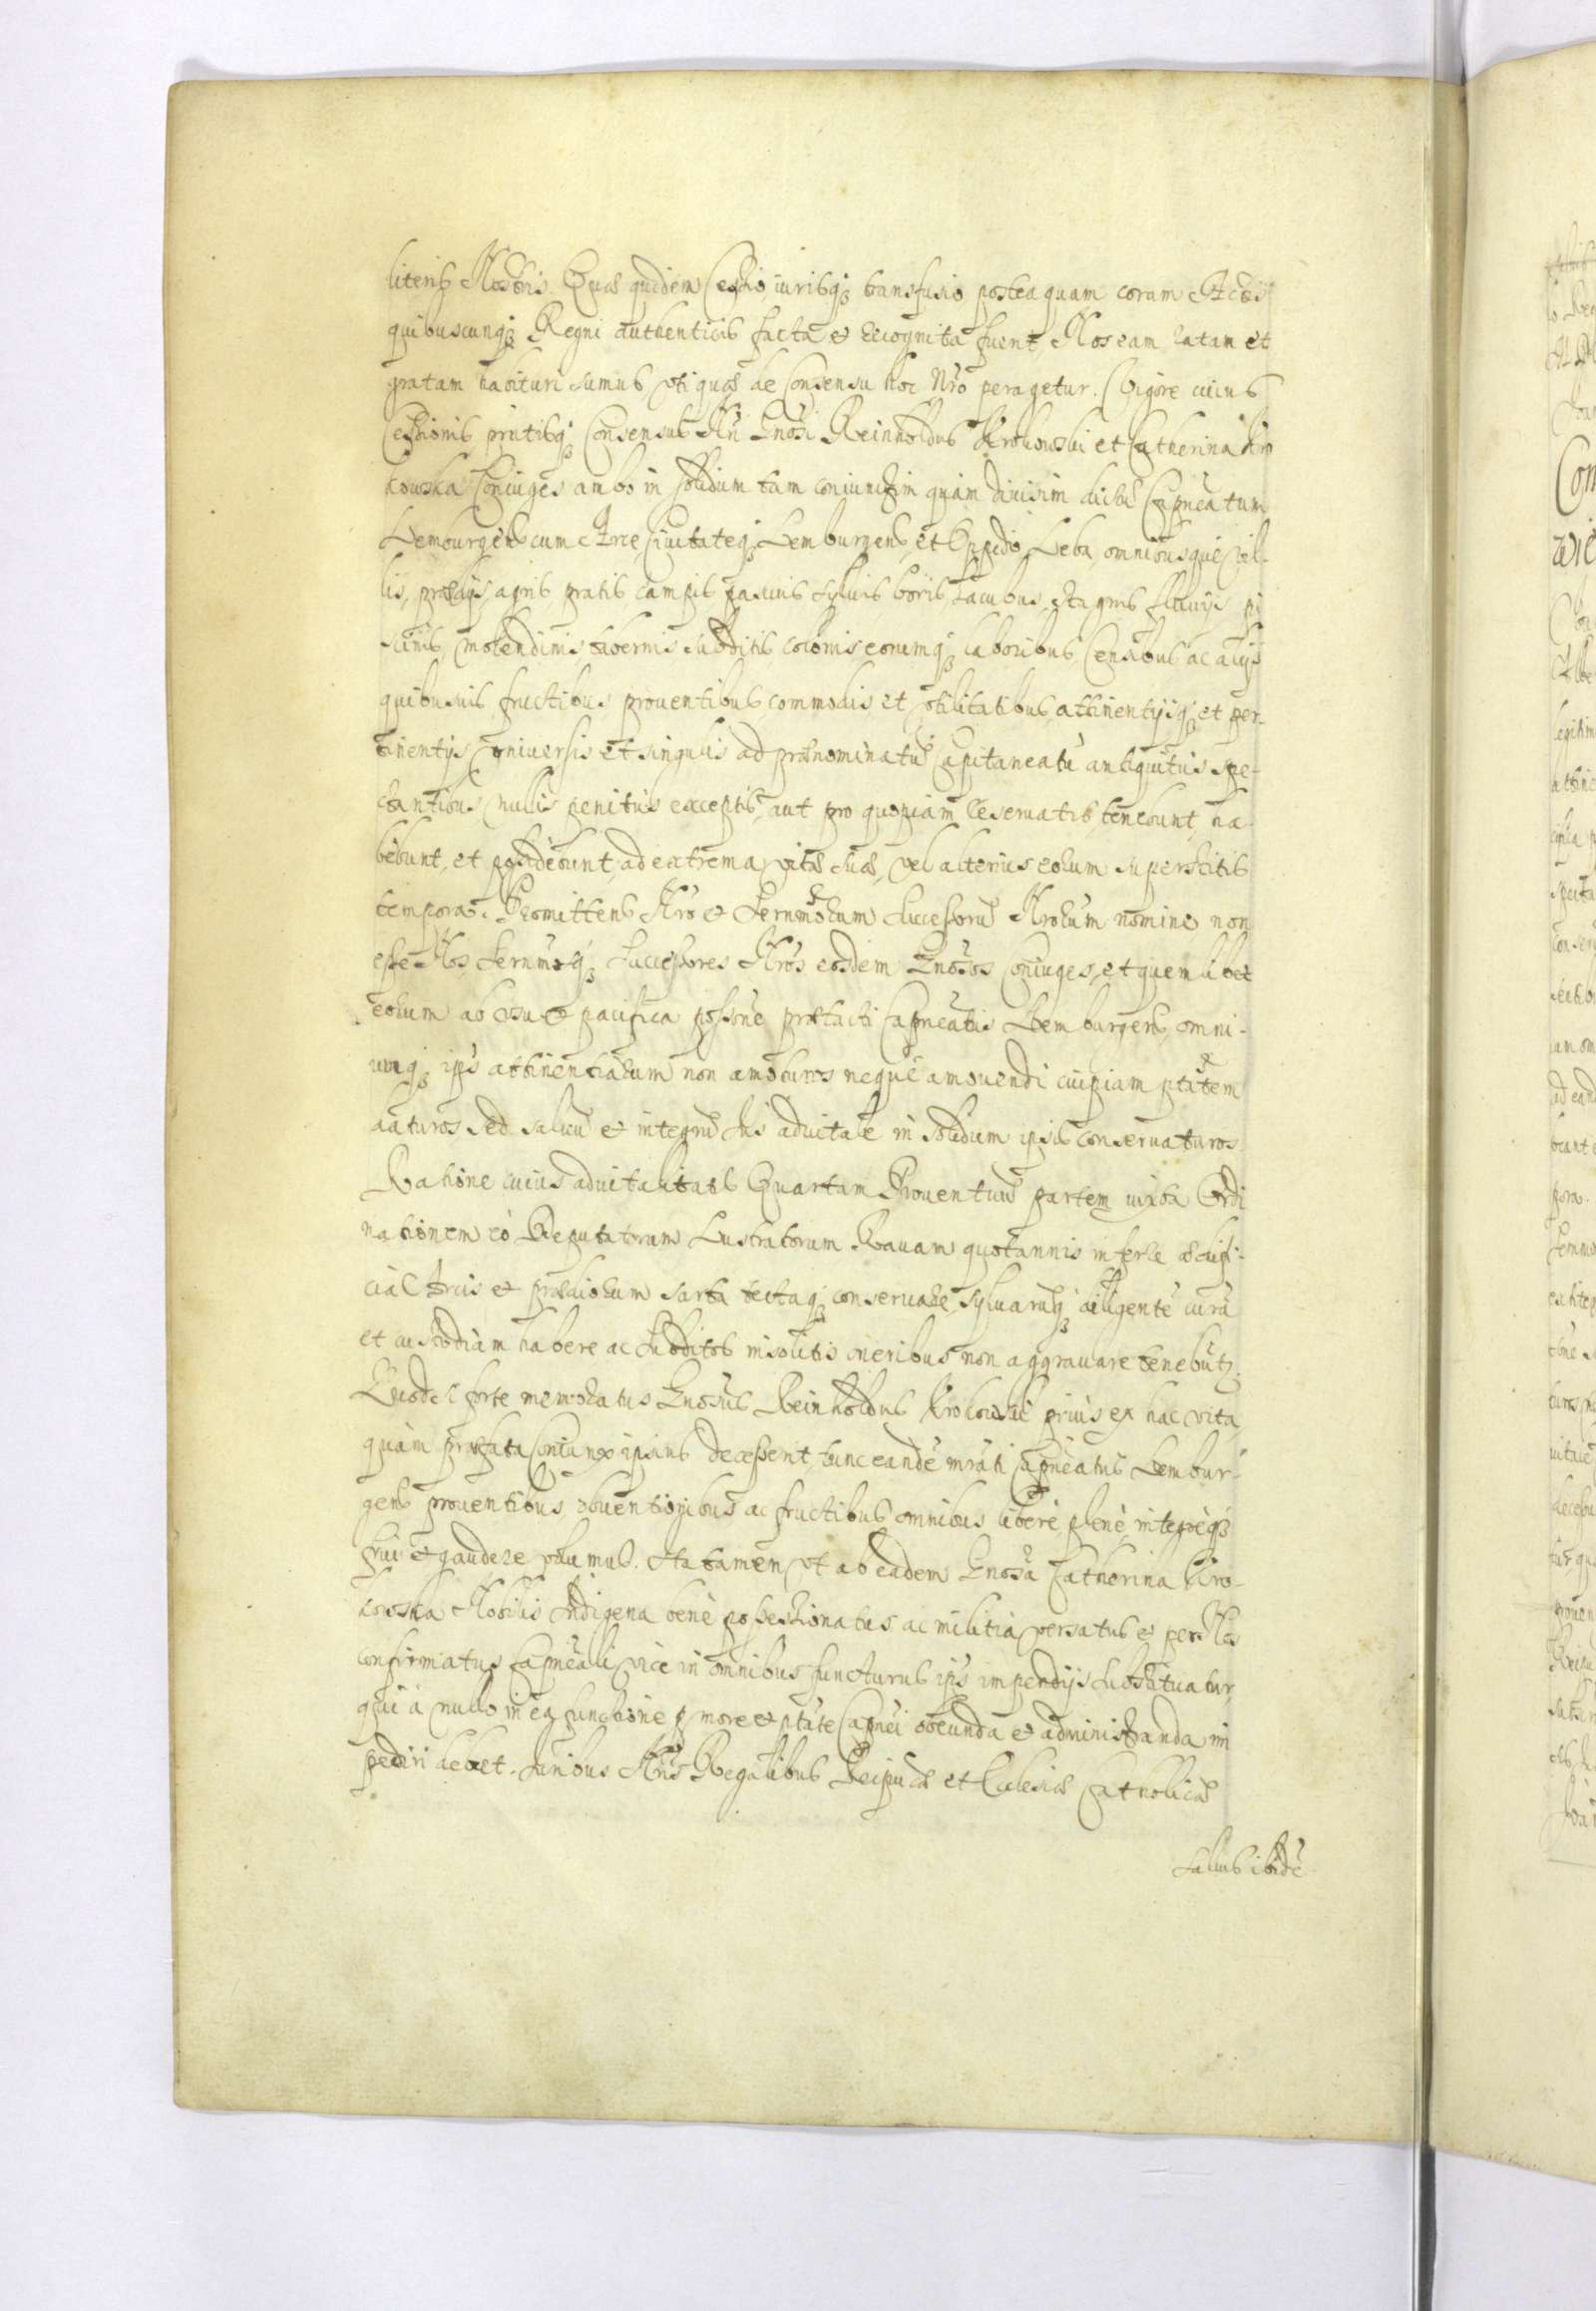 literis Nostris. Quae quidem Cessio iurisq; transfusio postea quam coram Actis
quibuscunq; Regni authenticis facta et recognita fuerit, Nos eam ratam et
gratam habituri sumus, vti quae de Consensu hoc Nro peragetur. Vigore cuius
Cessionis pntisq; Consensus Nri Gnosi Reinholdus Krokowski et Catherina Kro
kowska Coniuges ambo in solidum tam coniunctim quàm diuisim dictũ Capneatum
Lemburgens cum Arce, Ciuitateq; Lemburgens, et Oppido Leba, omnibusque Vil-
lis, praedijs, agris, pratis, campis, pascuis, syluis, boris, Lacubus, stagnis, fluuijs, pi
scinis, molendinis, tabernis, subditis, colonis, eorumq; laboribus, Censibus ac alijs
quibusuis fructibus, prouentibus, commodis et vtilitatibus, attinentijsq; et per-
tinentijs vniuersis et singulis ad praenominatũ Capitaneatũ antiquitus spe-
ctantibus, nullis penitus exceptis, aut pro quopiam reseruatis, tenebunt, ha
bebunt, et possidebunt, ad extrema vitae suae, vel alterius eorum superstitis
tempora. Promittens Nro et Sernmorum Successorũ Nrorum nomine non
esse Nos, Sernmosq; Successores Nros eosdem Gnosos Coniuges, et quemlibet
eorum ab vsu et pacifica possne praefacti Capneatus Lemburgens, omni-
umq; ips attinentiarum non amoturos neque amouendi cuipiam ptatem
daturos, sed saluũ et integrũ Ius aduitale in solidum ipsis conseruaturos.
Ratione cuius aduitalitatis Quartam Prouentuũ partem iuxta Ordi
nationem eò Deputatorum Lustratorum Rauam quotannis inferre, aedifi-
cia Arcis et praediorum sarta tectaq; conseruare, syluarũq; diligente curã
et custodiam habere ac Subditos insolitis oneribus non aggrauare tenebuntr.
Quod si forte memoratus Gnosus Reinholdus Krokowski prius ex hac vita,
quàm praefata Coniunx ipsius decesserit, tunc eandẽ mrati Capneatus Lembur-
gens prouentibus, obuentionibus ac fructibus omnibus liberè, plenè, integrèq;
frui et gaudere volumus. Ita tamen, vt ab eadem Gnosa Catherina Kro-
kowska Nobilis Indigena benè possessionatus ac militia versatus et per Nos
confirmatus Capneali vice in omnibus functurus ips impendijs substituatur,
qui à nullo in ea functione p more et ptate Capnei obeunda et administranda im
pediri debet. Iuribus Nris Regalibus Reipucae et Ecclesiae Catholicae
saluis ibidẽ